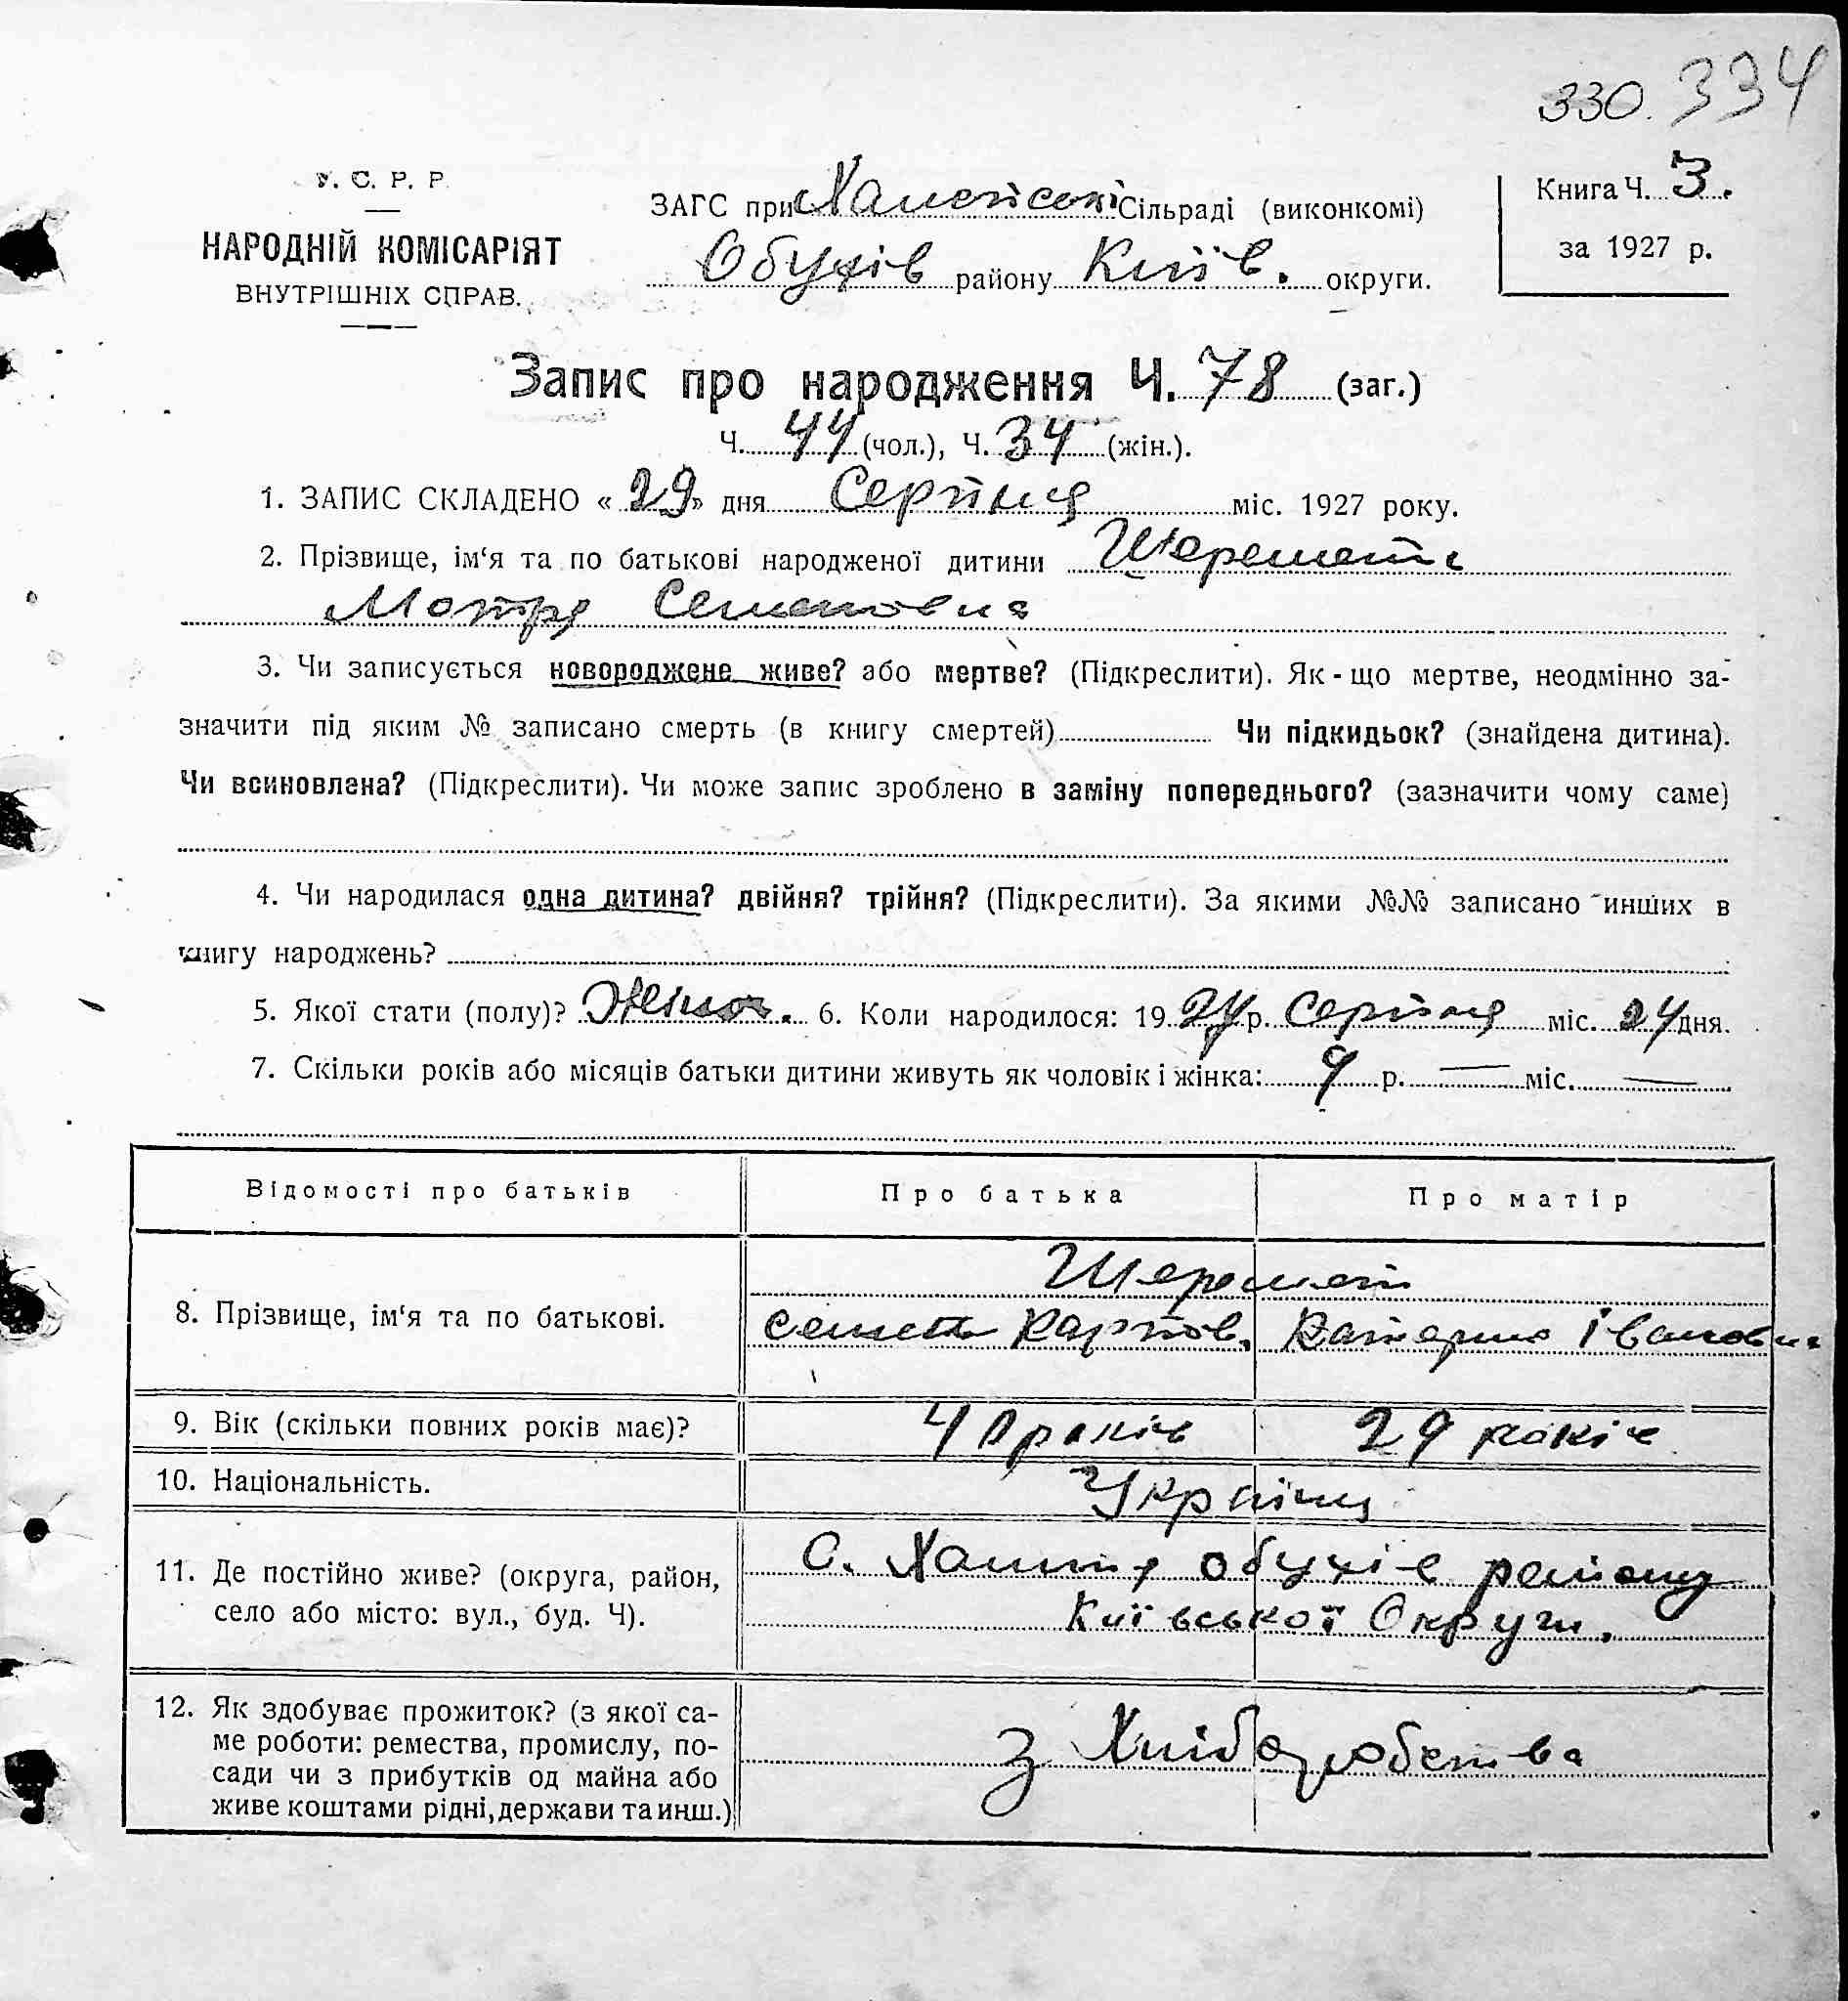 330. 334
У. С. Р. Р.
НАРОДНІЙ КОМІСАРІЯТ
ВНУТРІШНІХ СПРАВ.
ЗАГС при Сільраді (виконкомі)
Обухів району Київ. округи.
Книга Ч. 3.
за 1927 р.
Запис про народження Ч. 78 (заг.)
Ч. 44 (чол.), Ч. 34 (жін.).
1. ЗАПИС СКЛАДЕНО «29» дня Серпня міс. 1927 року.
2. Прізвище, ім‘я та по батькові народженої дитини Шеремет
Мотря Семеновна
3. Чи записується новороджене живе? або мертве? (Підкреслити). Як-що мертве, неодмінно за-
значити під яким № записано смерть (в книгу смертей) Чи підкидьок? (знайдена дитина).
Чи всиновлена? (Підкреслити). Чи може запис зроблено в заміну попереднього? (зазначити чому саме)
4. Чи народилася одна дитина? двійня? трійня? (Підкреслити). За якими №№ записано инших в
книгу народжень?
5. Якої стати (полу)? Жіноч. 6. Коли народилося: 1927 р. Серпня міс. 24 дня.
7. Скільки років або місяців батьки дитини живуть як чоловік і жінка: 9 р. — міс. —
Відомості про батьків Про батька Про матір
8. Прізвище, ім‘я та по батькові.
Шеремет
Семен Карпов. Катерина Івановна
9. Вік (скільки повних років має)? 40 років 29 років
10. Національність. Українці
11. Де постійно живе? (округа, район,
село або місто: вул., буд. Ч).
С. Обухів району
Київської Округи.
12. Як здобуває прожиток? (з якої са-
ме роботи: ремества, промислу, по-
сади чи з прибутків од майна або
живе коштами рідні, держави та инш.)
З Хліборобства